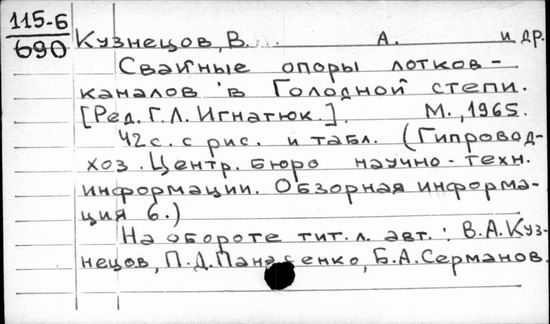 115-Б
690
Кузнецов, В. А. и др.
Свайные опоры лотков-
каналов в Голодной степи.
[Ред. Г.Л. Игнатюк.]. М., 1965.
42 с. с рис. и табл. (Гипровод-
хоз. Центр. бюро научно-техн.
информации. Обзорная информа-
ция 6.)
На обороте тит. л. авт.: В.А. Куз-
нецов, П.Д. Панасенко, Б.А. Серманов.